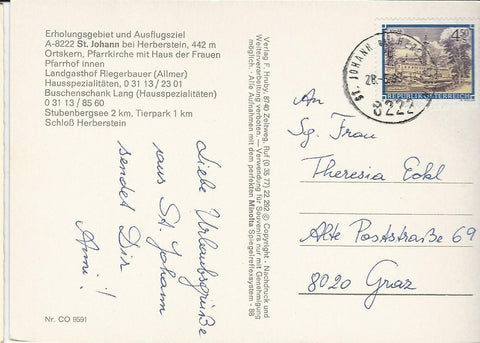 Erholungsgebiet und Ausflugsziel
A-8222 St. Johann bei Herberstein, 442 m
Ortskern, Pfarrkirche mit Haus der Frauen
Pfarrhof innen
Landgasthof Riegerbauer (Allmer)
(Hausspezialitäten) 0 31 13 / 23 01
Buschenschank Lang (Hausspezialitäten)
0 31 13 / 85 60
Stubenbergsee 2 km, Tierpark 1 km
Schloß Herberstein
Liebe Urlaubsgrüße
aus St. Johann
sendet Dir
Nr. CO 9591
Verlag F. Hruby, 8740 Zeltweg, Ruf (0 35 77) 22 292 © Copyright - Nachdruck und
Weiterverarbeitung verboten. — Verwendung für Souvenirs nur mit Genehmigung
möglich. - Alle Aufnahmen mit dem perfekten Minolta Spiegelreflexsystem - 88
4.50
REPUBLIK ÖSTERREICH
ST. JOHANN
8222
An
Sg. Frau
Theresia Eckl
Alte Poststraße 69
8020 Graz